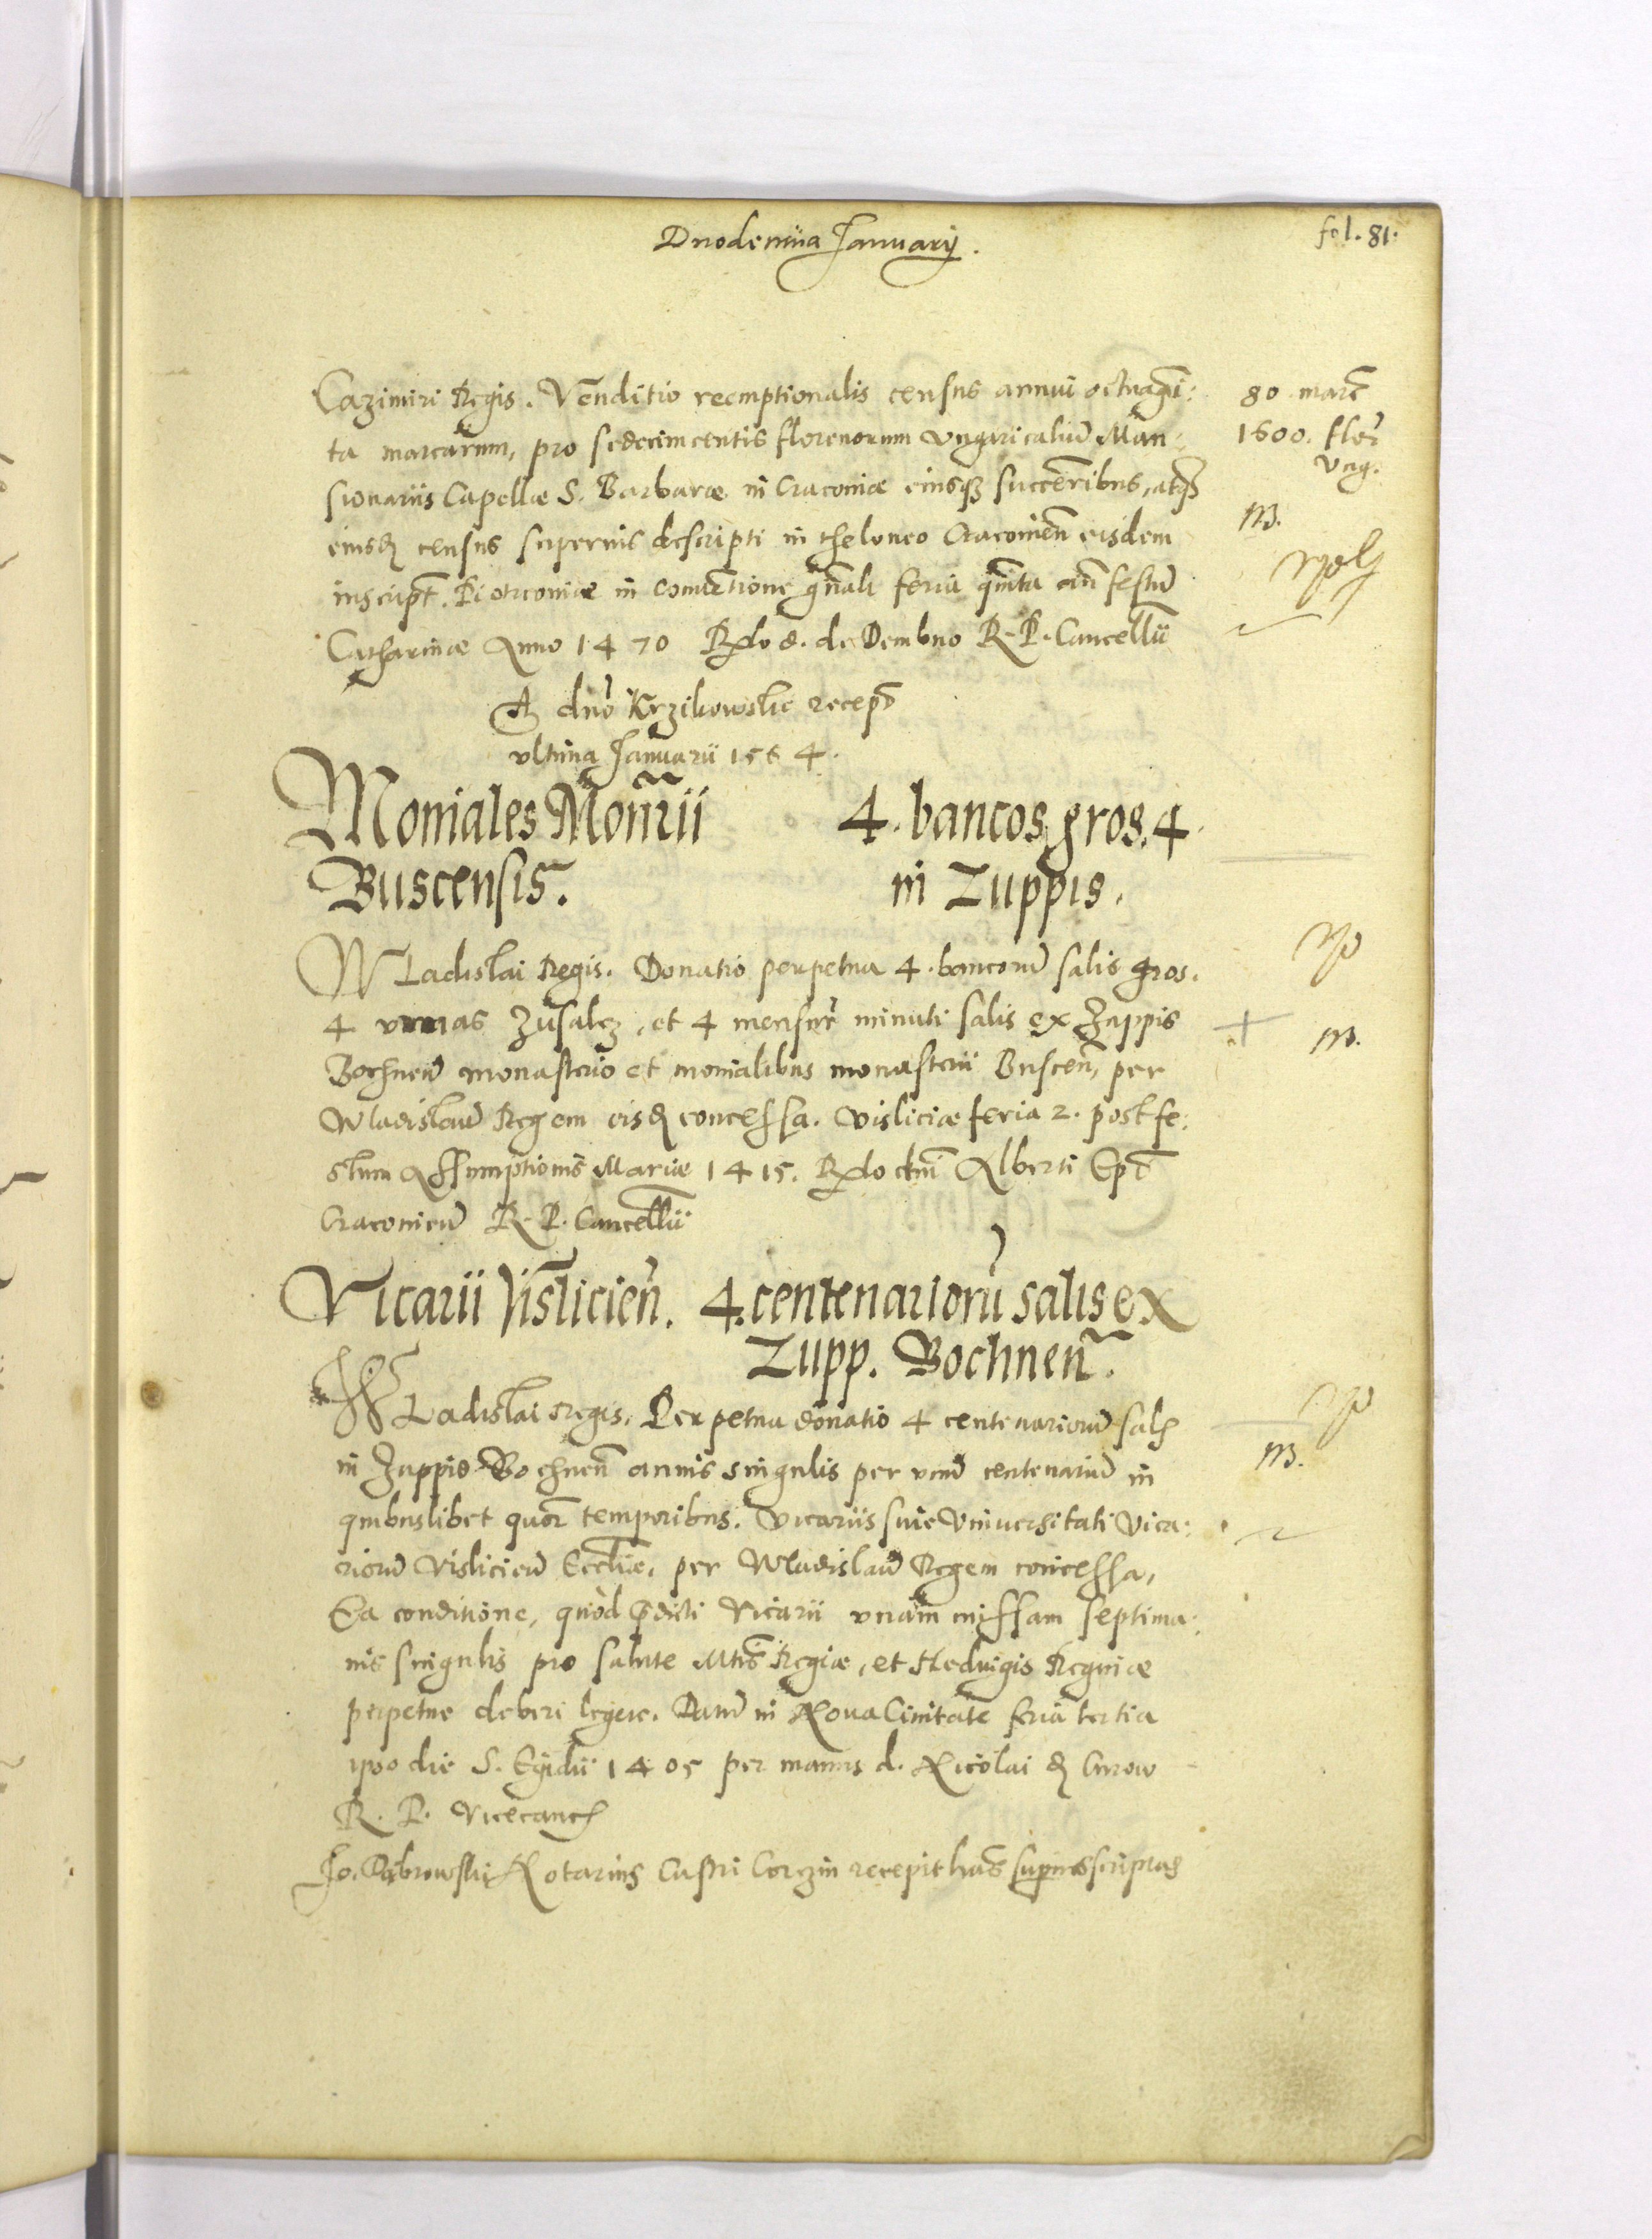 Duodecima Januarij.
fol. 81.
Cazimiri Regis. Venditio reemptionalis census annui octuagin:
ta marcarum, pro sedecimcentis florenorum vngaricaliũ Man:
sionariis Capellæ S. Barbaræ in Cracoviæ eiusq; succẽribus, atq;
eiusd. census supernis descripti in theloneo Cracovień eisdem
inscript. Piotrcoviæ in conuẽtione gñali feria quinta añ festũ
Catharinæ Anno 1470 Rlo d. de Dembno R. P. Cancellũ
80 marc
1600. flor
Vng.
m.
A dno Krzikowskie recept
vltima Januarii 1564.
Moniales Mońrii
Buscensis.
4. bancos gros. 4
in Zuppis.
Wladislai Regis. Donatio perpetua 4. bancorũ salis gros.
4 vrnas Zusalcz, et 4 mensur minuti salis ex Zuppis
Bochneñ monasterio et monialibus monasterii Busceñ, per
Wladislaũ Regem eisd concessa. Visliciæ feria 2. post fe:
stum Assumptionis Mariæ 1415. Rlo dni Alberti Epi
Cracovieñ R. P. Cancellũ
m.
Vicarii Vislicień. 4. centenariorũ salis ex
Zupp. Bochneñ.
Wladislai Regis. Perpetua donatio 4 centenariorũ salis
in Zuppis Bochneñ annis singulis per vnũ centenariũ in
quibuslibet quor temporibus. Vicariis siue Vniuersitati Vica:
riorũ Vislicieñ Eccliæ, per Wladislaũ Regem concessa,
Ea conditione, quòd p̃dicti Vicarii vnam missam septima:
nis singulis pro salute Mtis Regiæ, et Hedvigis Reginæ
perpetue deberi legere. Datũ in Noua Ciuitate feria tertia
ipso die S. Egidii 1405 per manus d. Nicolai d. Curow
R. P. Vicecanc
m.
Jo. Dąbrowski Notarius Castri Corczin recepit has supra scriptas